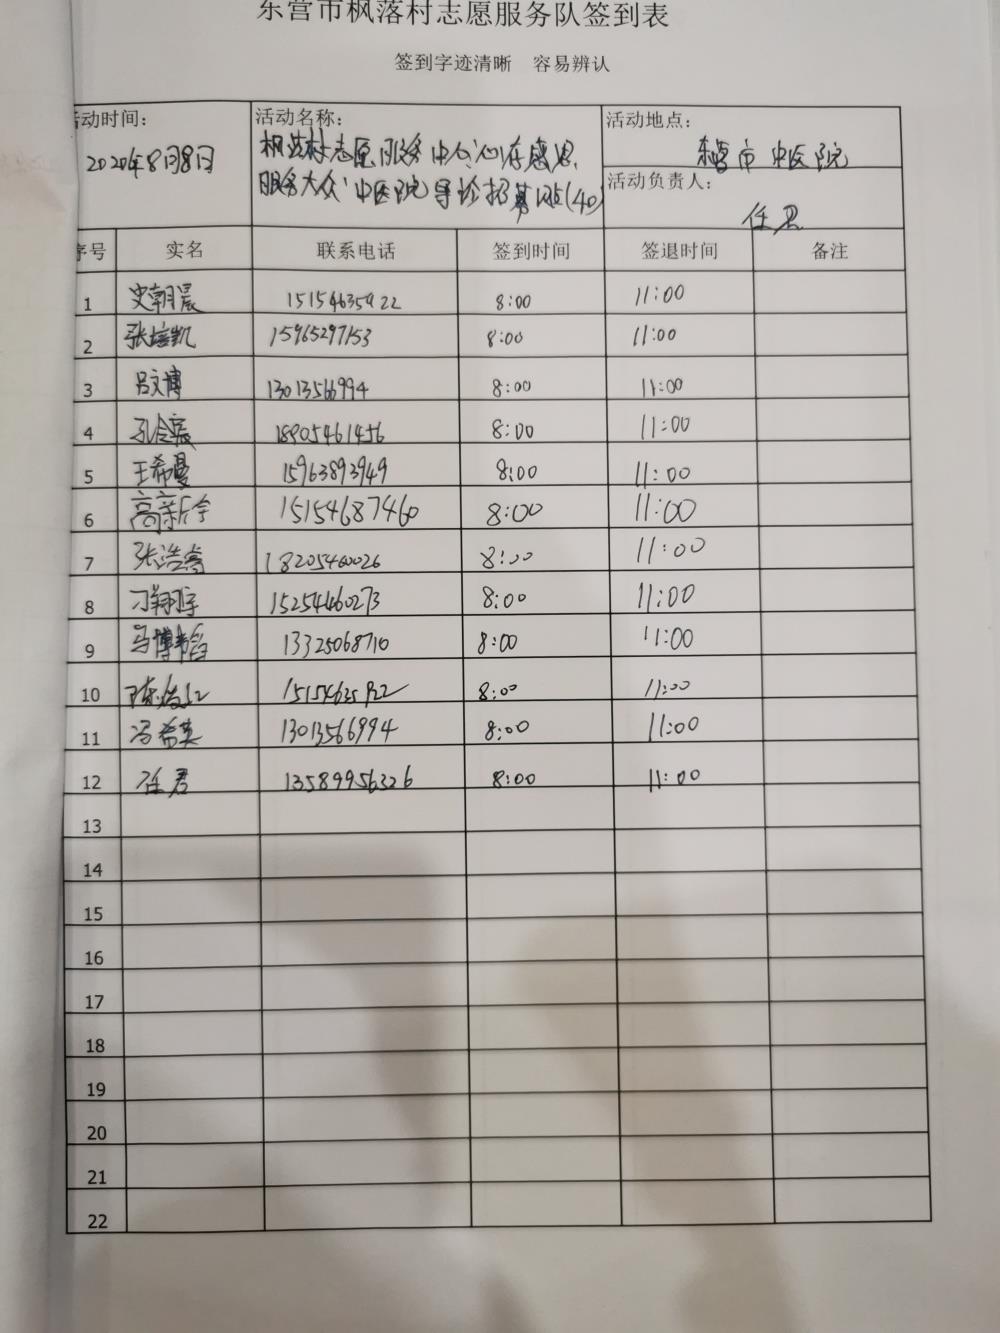 东营市枫落村志愿服务队签到表
签到字迹清晰 容易辨认
活动时间：
2020年8月8日
活动名称：
枫落村志愿服务中心'心存感恩
服务大众'中医院导诊招募 (40)
活动地点：
东营市中医院
活动负责人：
任君
序号 实名 联系电话 签到时间 签退时间 备注
1 史朝晨 15154635922 8:00 11:00
2 张培凯 15965297153 8:00 11:00
3 吕文博 13013566994 8:00 11:00
4 孔令宸 18905461456 8:00 11:00
5 王希曼 15963893949 8:00 11:00
6 高新宇 15154687460 8:00 11:00
7 张浩嵩 18205460026 8:00 11:00
8 刁翔宇 15254460273 8:00 11:00
9 马博韬 13325068710 8:00 11:00
10 15154635922 8:00 11:00
11 冯希英 13013566994 8:00 11:00
12 任君 13589956326 8:00 11:00
13
14
15
16
17
18
19
20
21
22